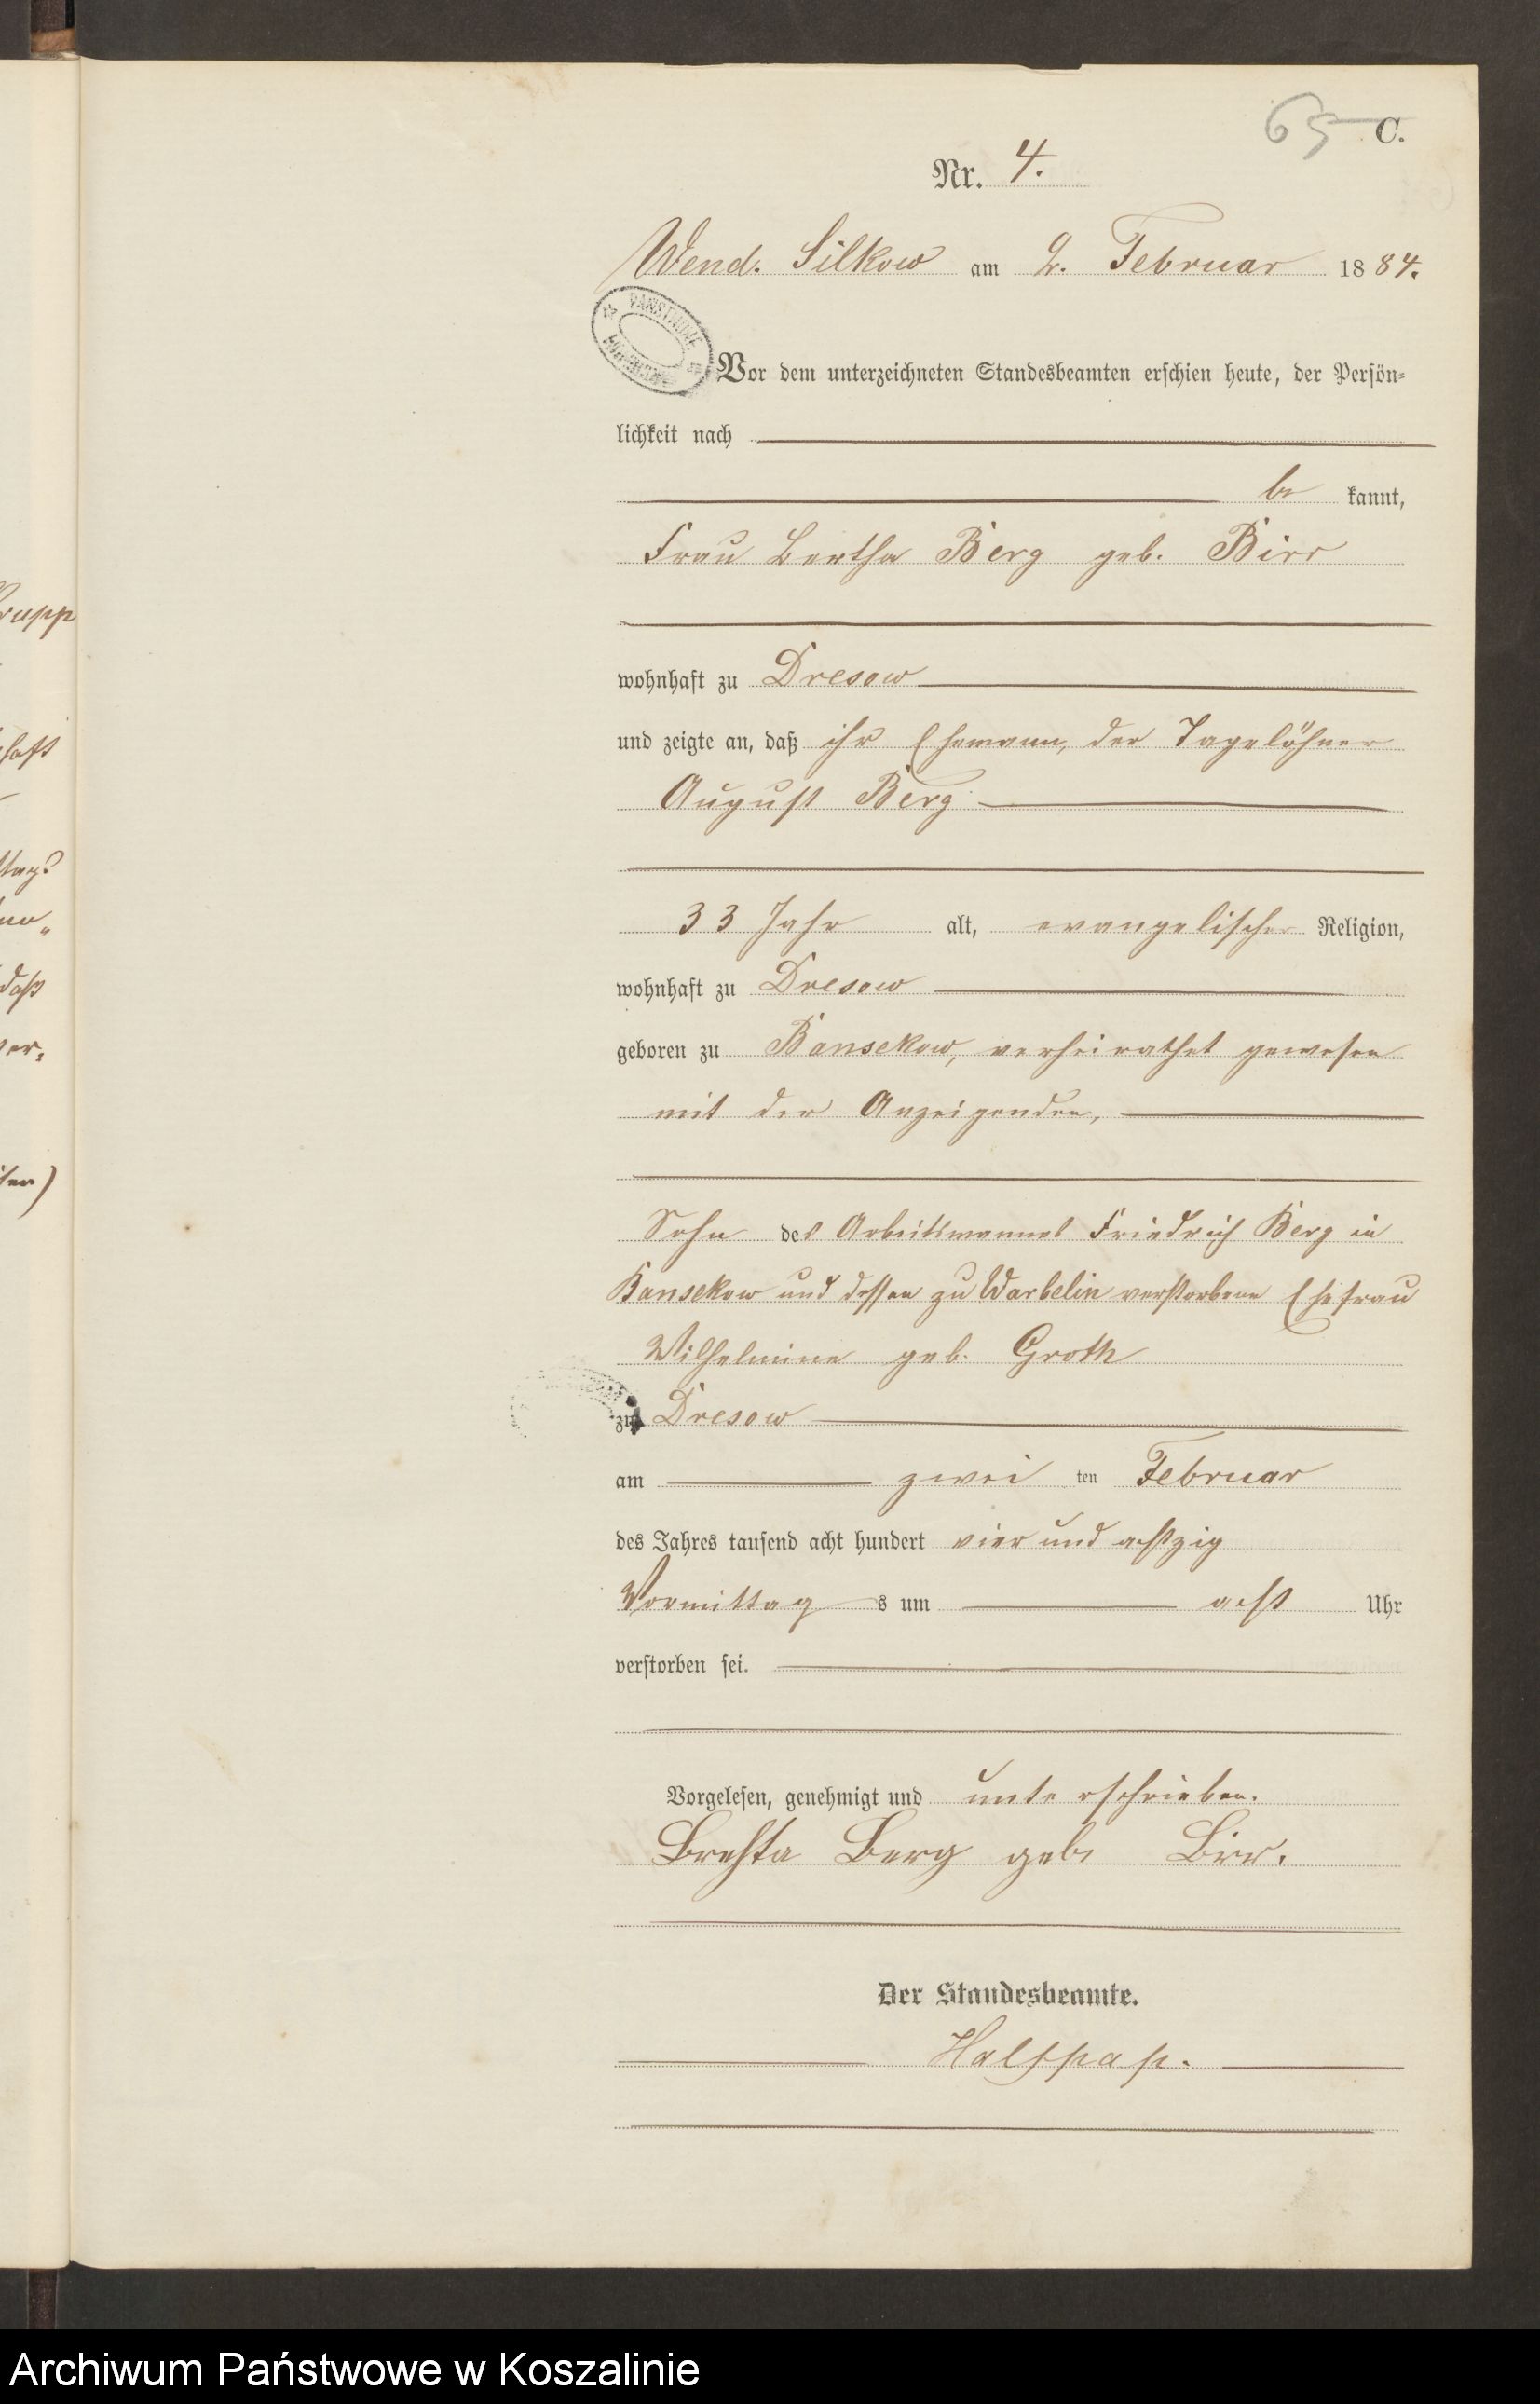 65 C.
Nr. 4.
Wend. Silkow am 2. Februar 1884.
PAŃSTWOWE
Vor dem unterzeichneten Standesbeamten erschien heute, der Persön-
lichkeit nach
be kannt,
Frau Bertha Berg geb. Birr
wohnhaft zu Dresow
und zeigte an, daß ihr Ehemann, der Tagelöhner
August Berg
33 Jahr alt, evangelischer Religion,
wohnhaft zu Dresow
geboren zu Bansekow, verheirathet gewesen
mit der Anzeigenden,
Sohn des Arbeitsmannes Friedrich Berg in
Bansekow und dessen zu Warbelin verstorbene Ehefrau
Wilhelmine geb. Groth
zu Dresow
am zwei ten Februar
des Jahres tausend acht hundert vier und achtzig
Vormittag s um acht Uhr
verstorben sei.
Vorgelesen, genehmigt und unterschrieben.
Brehta Berg geb Birr.
Der Standesbeamte.
Halfpap.
rupp
haft
daß
Archiwum Państwowe w Koszalinie